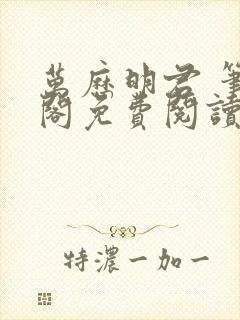 萬歷明君 筆
閣免費閱讀
特濃一加一